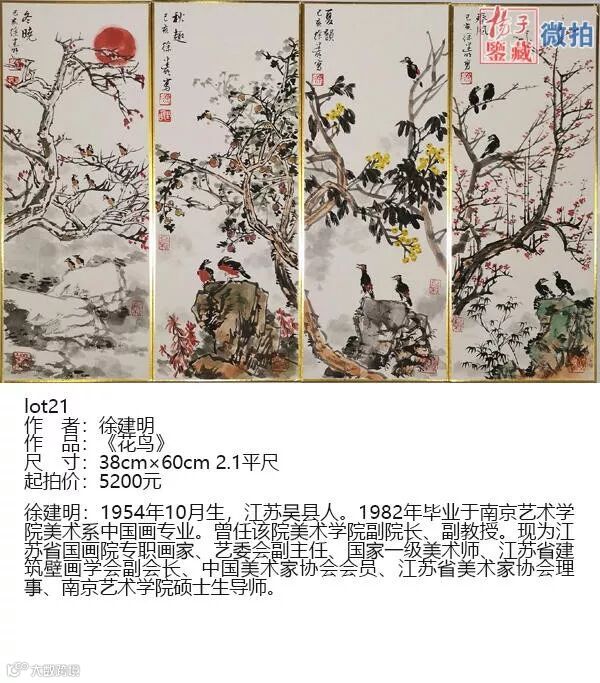 冬晓
己亥徐建明
秋趣
己亥徐建明写
夏韻
己亥徐建明写
春风
己亥徐建明写
扬子
鉴藏
微拍
lot21
作 者：徐建明
作 品：《花鸟》
尺 寸：38cm×60cm 2.1平尺
起拍价：5200元
徐建明：1954年10月生，江苏吴县人。1982年毕业于南京艺术学
院美术系中国画专业。曾任该院美术学院副院长、副教授。现为江
苏省国画院专职画家、艺委会副主任、国家一级美术师、江苏省建
筑壁画学会副会长、中国美术家协会会员、江苏省美术家协会理
事、南京艺术学院硕士生导师。
大数跨境